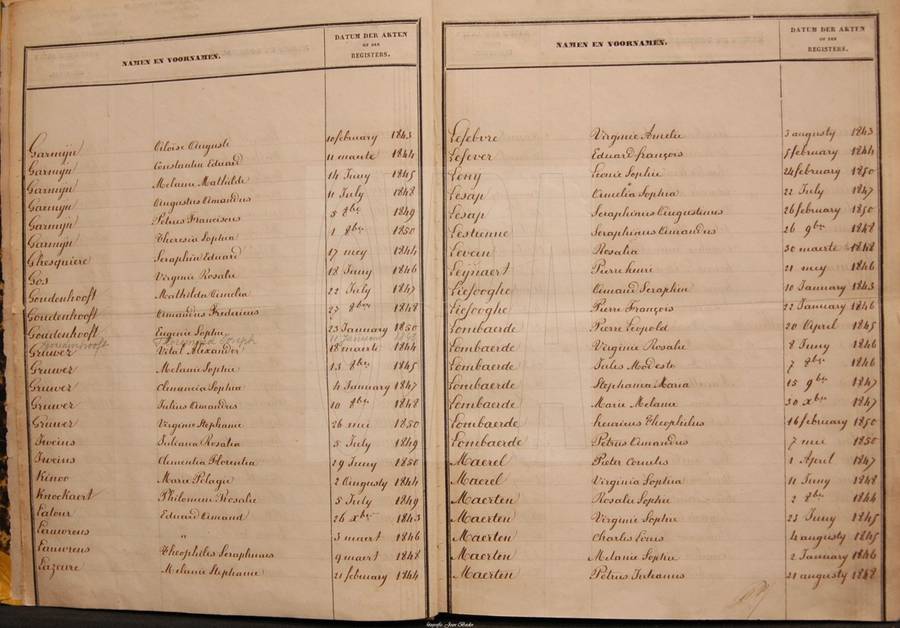 NAMEN EN VOORNAMEN. DATUM DER AKTEN OF DER REGISTERS.
Garmijn Eloise Auguste 10 february 1843
Garmijn Constantin Eduard 11 maarte 1844
Garmijn Melanie Mathilde 14 Juny 1845
Garmijn Augustus Amandus 11 July 1848
Garmijn Petrus Franciscus 5 8bre 1849
Garmijn Theresia Sophia 1 8bre 1850
Ghesquiere Seraphin Eduard 17 mey 1844
Gos Virginie Rosalie 18 Juny 1846
Goudenhooft Mathilda Amelia 22 July 1847
Goudenhooft Amandus Fredericus 27 8bre 1848
Goudenhooft Eugenie Sophie 23 January 1850
Gruwez Vital Alexander 18 maarte 1844
Gruwez Melanie Sophie 13 8bre 1845
Gruwez Amancia Sophia 4 January 1847
Gruwez Julius Amandus 10 8bre 1848
Gruwez Virginie Stephanie 26 mei 1850
Iweins Juliana Rosalia 5 July 1849
Iweins Clementia Florentia 29 Juny 1850
Kinoo Marie Pelagie 2 Augusty 1844
Knockaert Philomene Rosalie 5 July 1849
Latour Eduard Amand 26 xbre 1843
Lauwrens " 3 maart 1846
Lauwrens Theophiles Seraphinus 9 maart 1848
Lazeure Melanie Stephanie 21 february 1844
NAMEN EN VOORNAMEN. DATUM DER AKTEN OF DER REGISTERS.
Lefebvre Virginie Amelie 3 augusty 1843
Lefever Eduard françois 7 february 1844
Leny Leonie Sophie 24 february 1850
Lesap Amelia Sophia 22 July 1847
Lesap Seraphinus Augustinus 26 february 1850
Lestienne Seraphinus Amandus 26 9bre 1848
Levein Rosalia 30 maarte 1848
Leijnaert Pierre henri 21 mey 1846
Liefooghe Amand Seraphin 10 January 1843
Liefooghe Pierre François 22 January 1846
Lombaerde Pierre Leopold 20 April 1845
Lombaerde Virginie Rosalie 8 Juny 1846
Lombaerde Jules Modeste 7 8bre 1846
Lombaerde Stephania Maria 15 9bre 1847
Lombaerde Marie Melanie 30 xbre 1847
Lombaerde henricus Theophilus 16 february 1850
Lombaerde Petrus Amandus 7 mei 1850
Maerel Pieter Cornelis 1 April 1847
Maerel Virginia Sophia 11 Juny 1848
Maerten Rosalie Sophie 2 8bre 1844
Maerten Virginie Sophie 23 Juny 1845
Maerten Charles Louis 4 augusty 1845
Maerten Melanie Sophie 2 January 1846
Maerten Petrus Julianus 21 augusty 1848